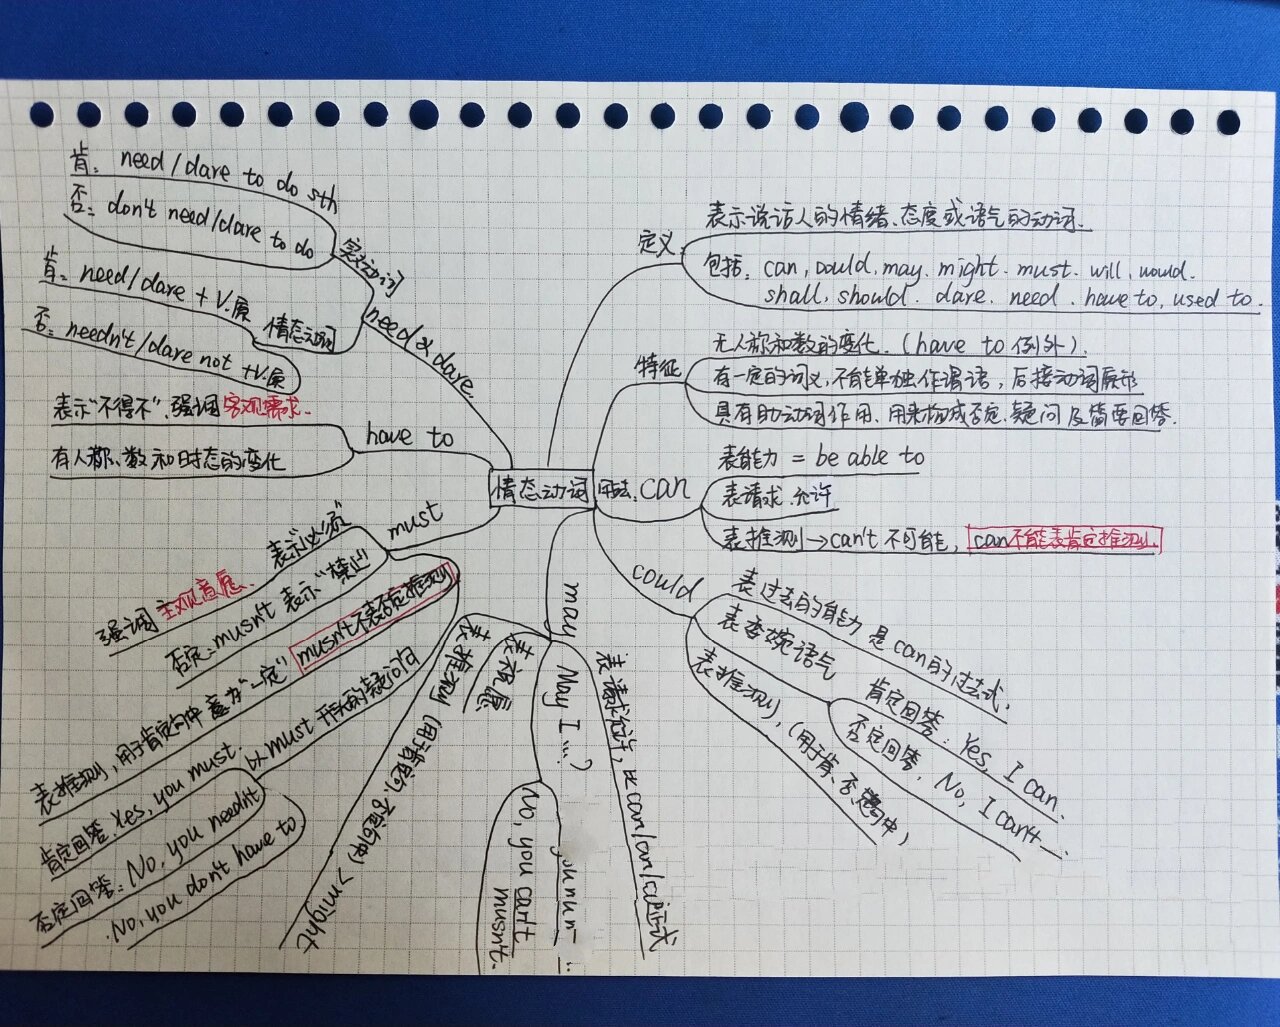 情态动词
定义
表示说话人的情绪、态度或语气的动词.
包括: can, could, may. might. must. will, would.
shall, should. dare. need. have to, used to.
特征
无人称和数的变化. (have to 例外).
有一定的词义,不能单独作谓语,后接动词原形
具有助动词作用、用来构成否定、疑问及简要回答.
用法. can
表能力 = be able to
表请求.允许
表推测→can't 不可能, can不能表肯定推测.
could
表过去的能力 是can的过去式.
表委婉语气
肯定回答: Yes, I can.
否定回答. No, I can't
表推测, (用于肯.否定句中)
may
表请求允许, 比can
May I ...?
No, you can't
musn't.
表祝愿.
表推测 (用于肯定句, 否定句中) > might
must
表示"必须"
强调 主观意愿.
否定: musn't 表示"禁止"
表推测, 用于肯定句中 意为"一定" musn't不表否定推测
以must开头的疑问句
肯定回答: Yes, you must.
否定回答: No, you needn't
No, you don't have to
have to
表示"不得不", 强调 客观需求.
有人称、数和时态的变化
need & dare
实动词
肯: need/dare to do sth
否: don't need/dare to do
情态动词
肯: need/dare + V.原
否: needn't/dare not +V.原